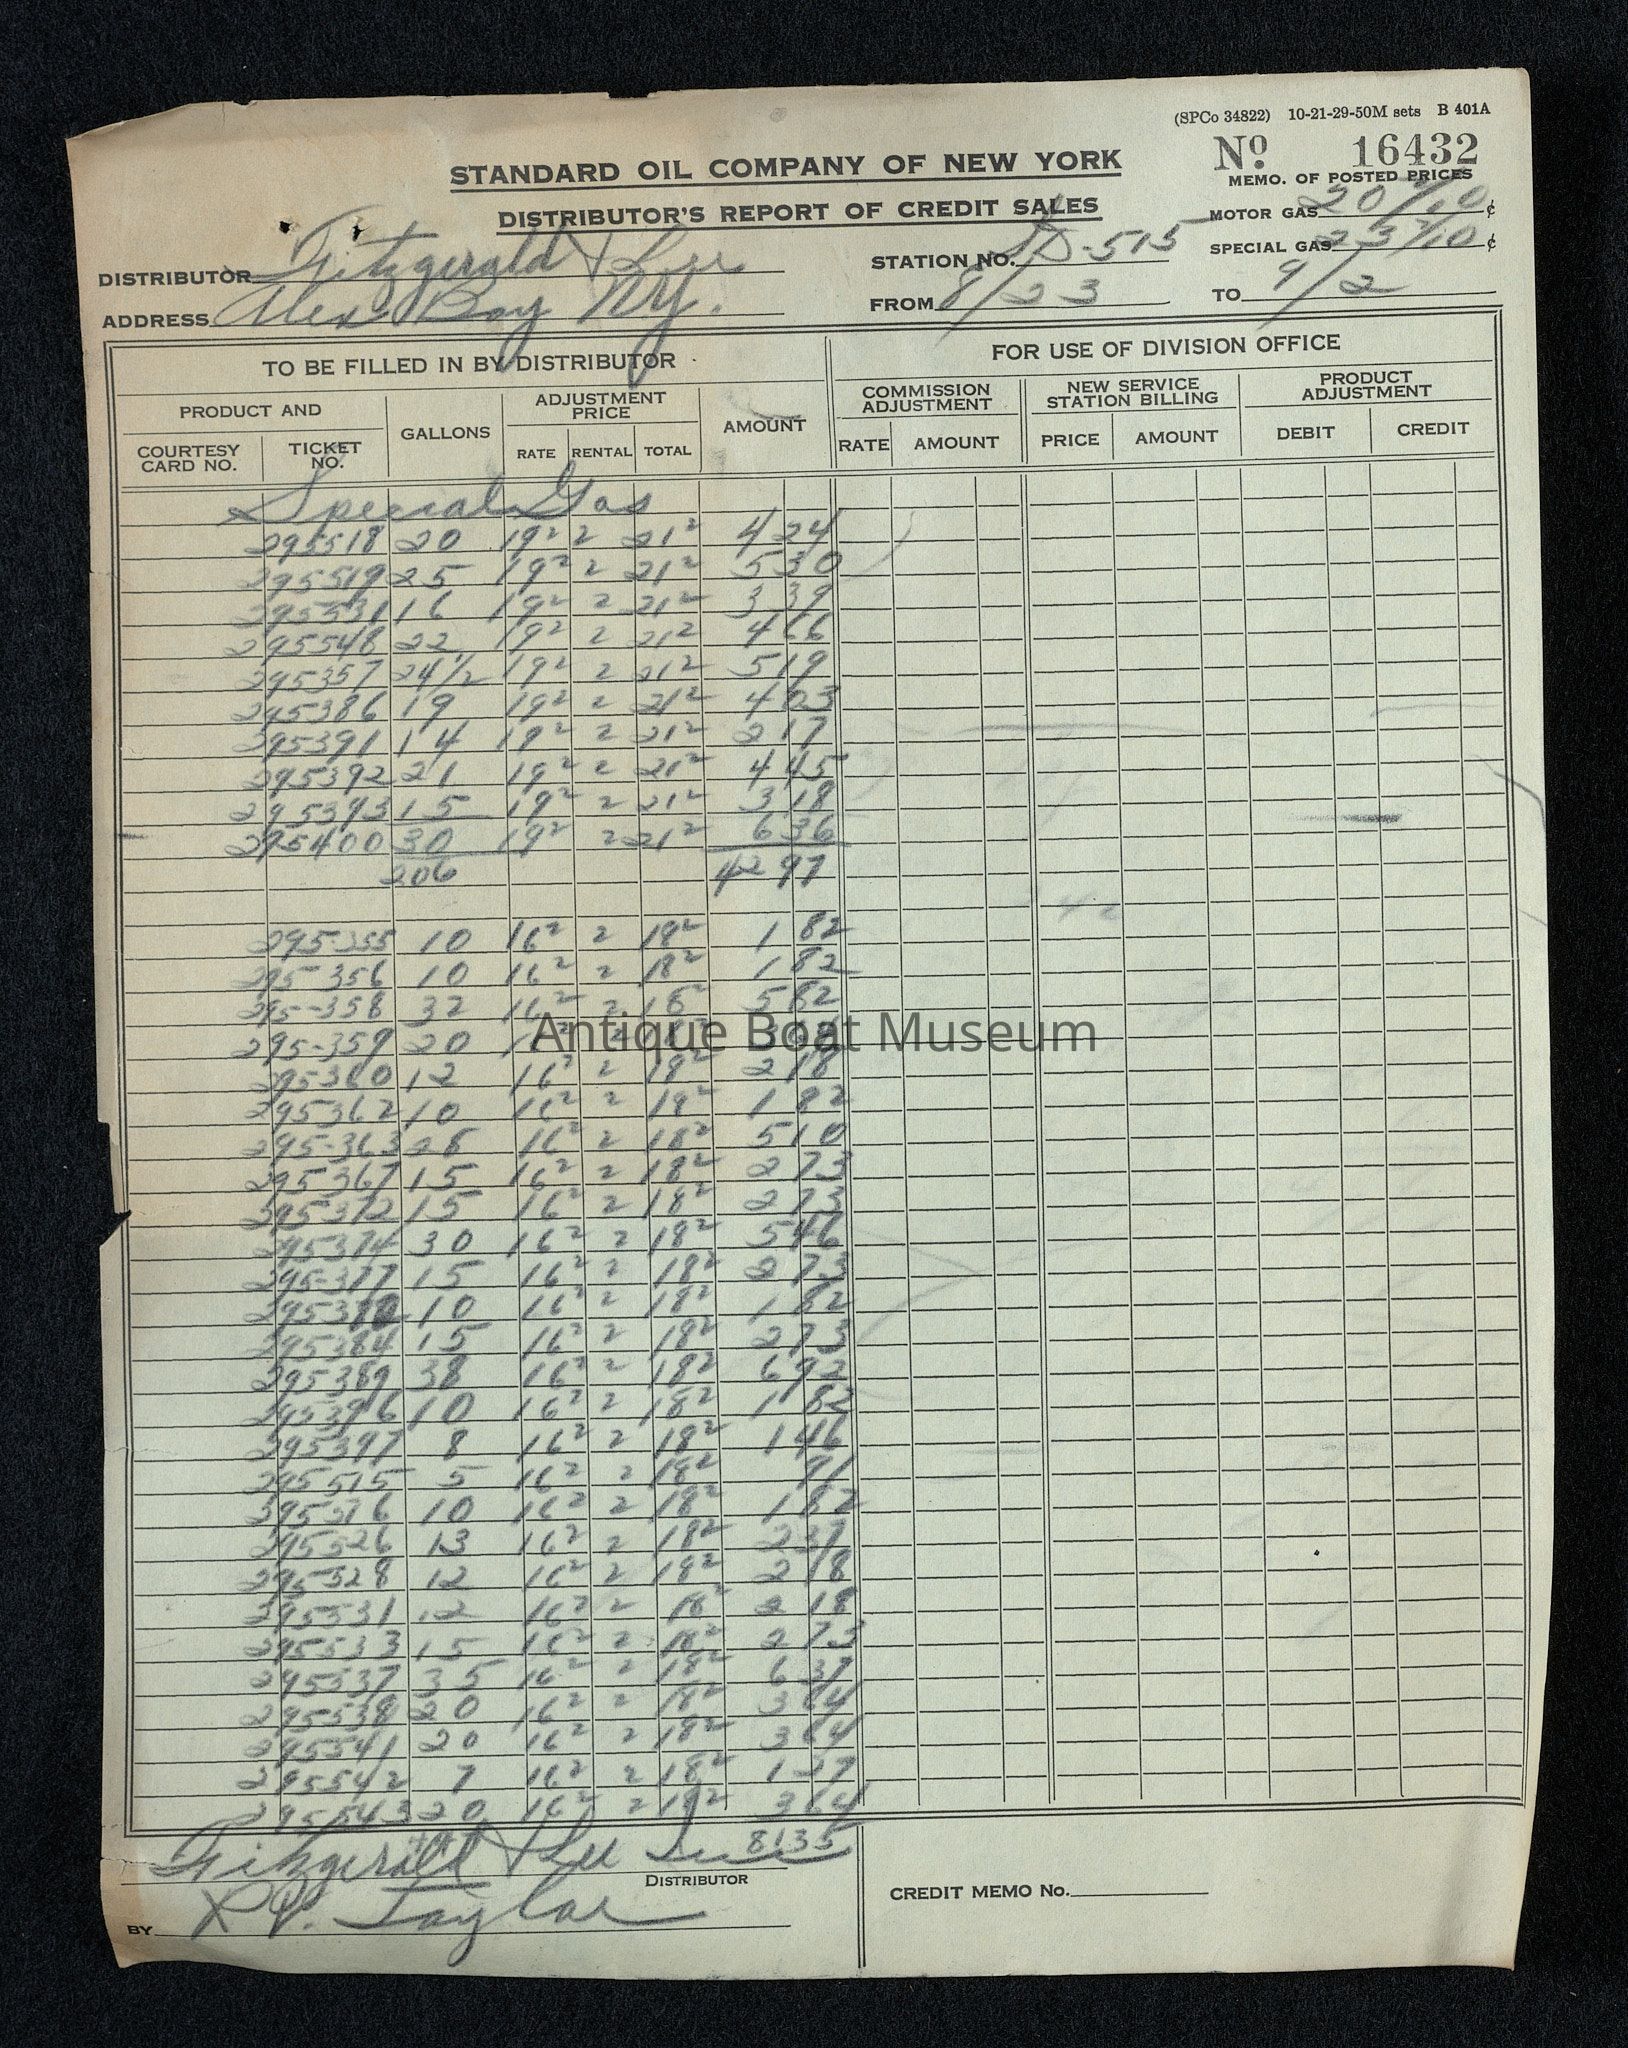 (SPCo 34822) 10-21-29-50M sets B 401A
No 16432
STANDARD OIL COMPANY OF NEW YORK
MEMO. OF POSTED PRICES
DISTRIBUTOR'S REPORT OF CREDIT SALES
MOTOR GAS 20 2/10 ¢
DISTRIBUTOR Fitzgerald & Lee
STATION NO. SD-515
SPECIAL GAS 23 2/10 ¢
ADDRESS Alex Bay N.Y.
FROM 8/23 TO 9/2
TO BE FILLED IN BY DISTRIBUTOR FOR USE OF DIVISION OFFICE
PRODUCT AND GALLONS ADJUSTMENT PRICE AMOUNT COMMISSION ADJUSTMENT NEW SERVICE STATION BILLING PRODUCT ADJUSTMENT
COURTESY CARD NO. TICKET NO. RATE RENTAL TOTAL RATE AMOUNT PRICE AMOUNT DEBIT CREDIT
Special Gas
295518 20 19² 2 21² 4 24
295519 25 19² 2 21² 5 30
295531 16 19² 2 21² 3 39
295548 22 19² 2 21² 4 66
295357 24 1/2 19² 2 21² 5 19
295386 19 19² 2 21² 4 03
295391 14 19² 2 21² 2 17
295392 21 19² 2 21² 4 45
295393 15 19² 2 21² 3 18
295400 30 19² 2 21² 6 36
206 42 97
295355 10 16² 2 18² 1 82
295356 10 16² 2 18² 1 82
295-358 32 16² 2 18² 5 82
295-359 20
Antique Boat Museum
295360 12 16² 2 18² 2 18
295362 10 16² 2 18² 1 82
295-363 28 16² 2 18² 5 10
295367 15 16² 2 18² 2 73
295372 15 16² 2 18² 2 73
295374 30 16² 2 18² 5 46
295-377 15 16² 2 18² 2 73
10 16² 2 18² 1 82
295384 15 16² 2 18² 2 73
295389 38 16² 2 18² 6 92
295396 10 16² 2 18² 1 82
295397 8 16² 2 18² 1 46
295515 5 16² 2 18² 91
295516 10 16² 2 18² 1 82
295526 13 16² 2 18² 2 37
295528 12 16² 2 18² 2 18
295531 12 16² 2 18² 2 18
295533 15 16² 2 18² 2 73
295537 35 16² 2 18² 6 37
295538 20 16² 2 18² 3 64
295541 20 16² 2 18² 3 64
295542 7 16² 2 18² 1 27
295543 20 16² 2 18² 3 64
81 35
Fitzgerald & Lee Inc
DISTRIBUTOR
CREDIT MEMO No.
BY R.V. Taylor